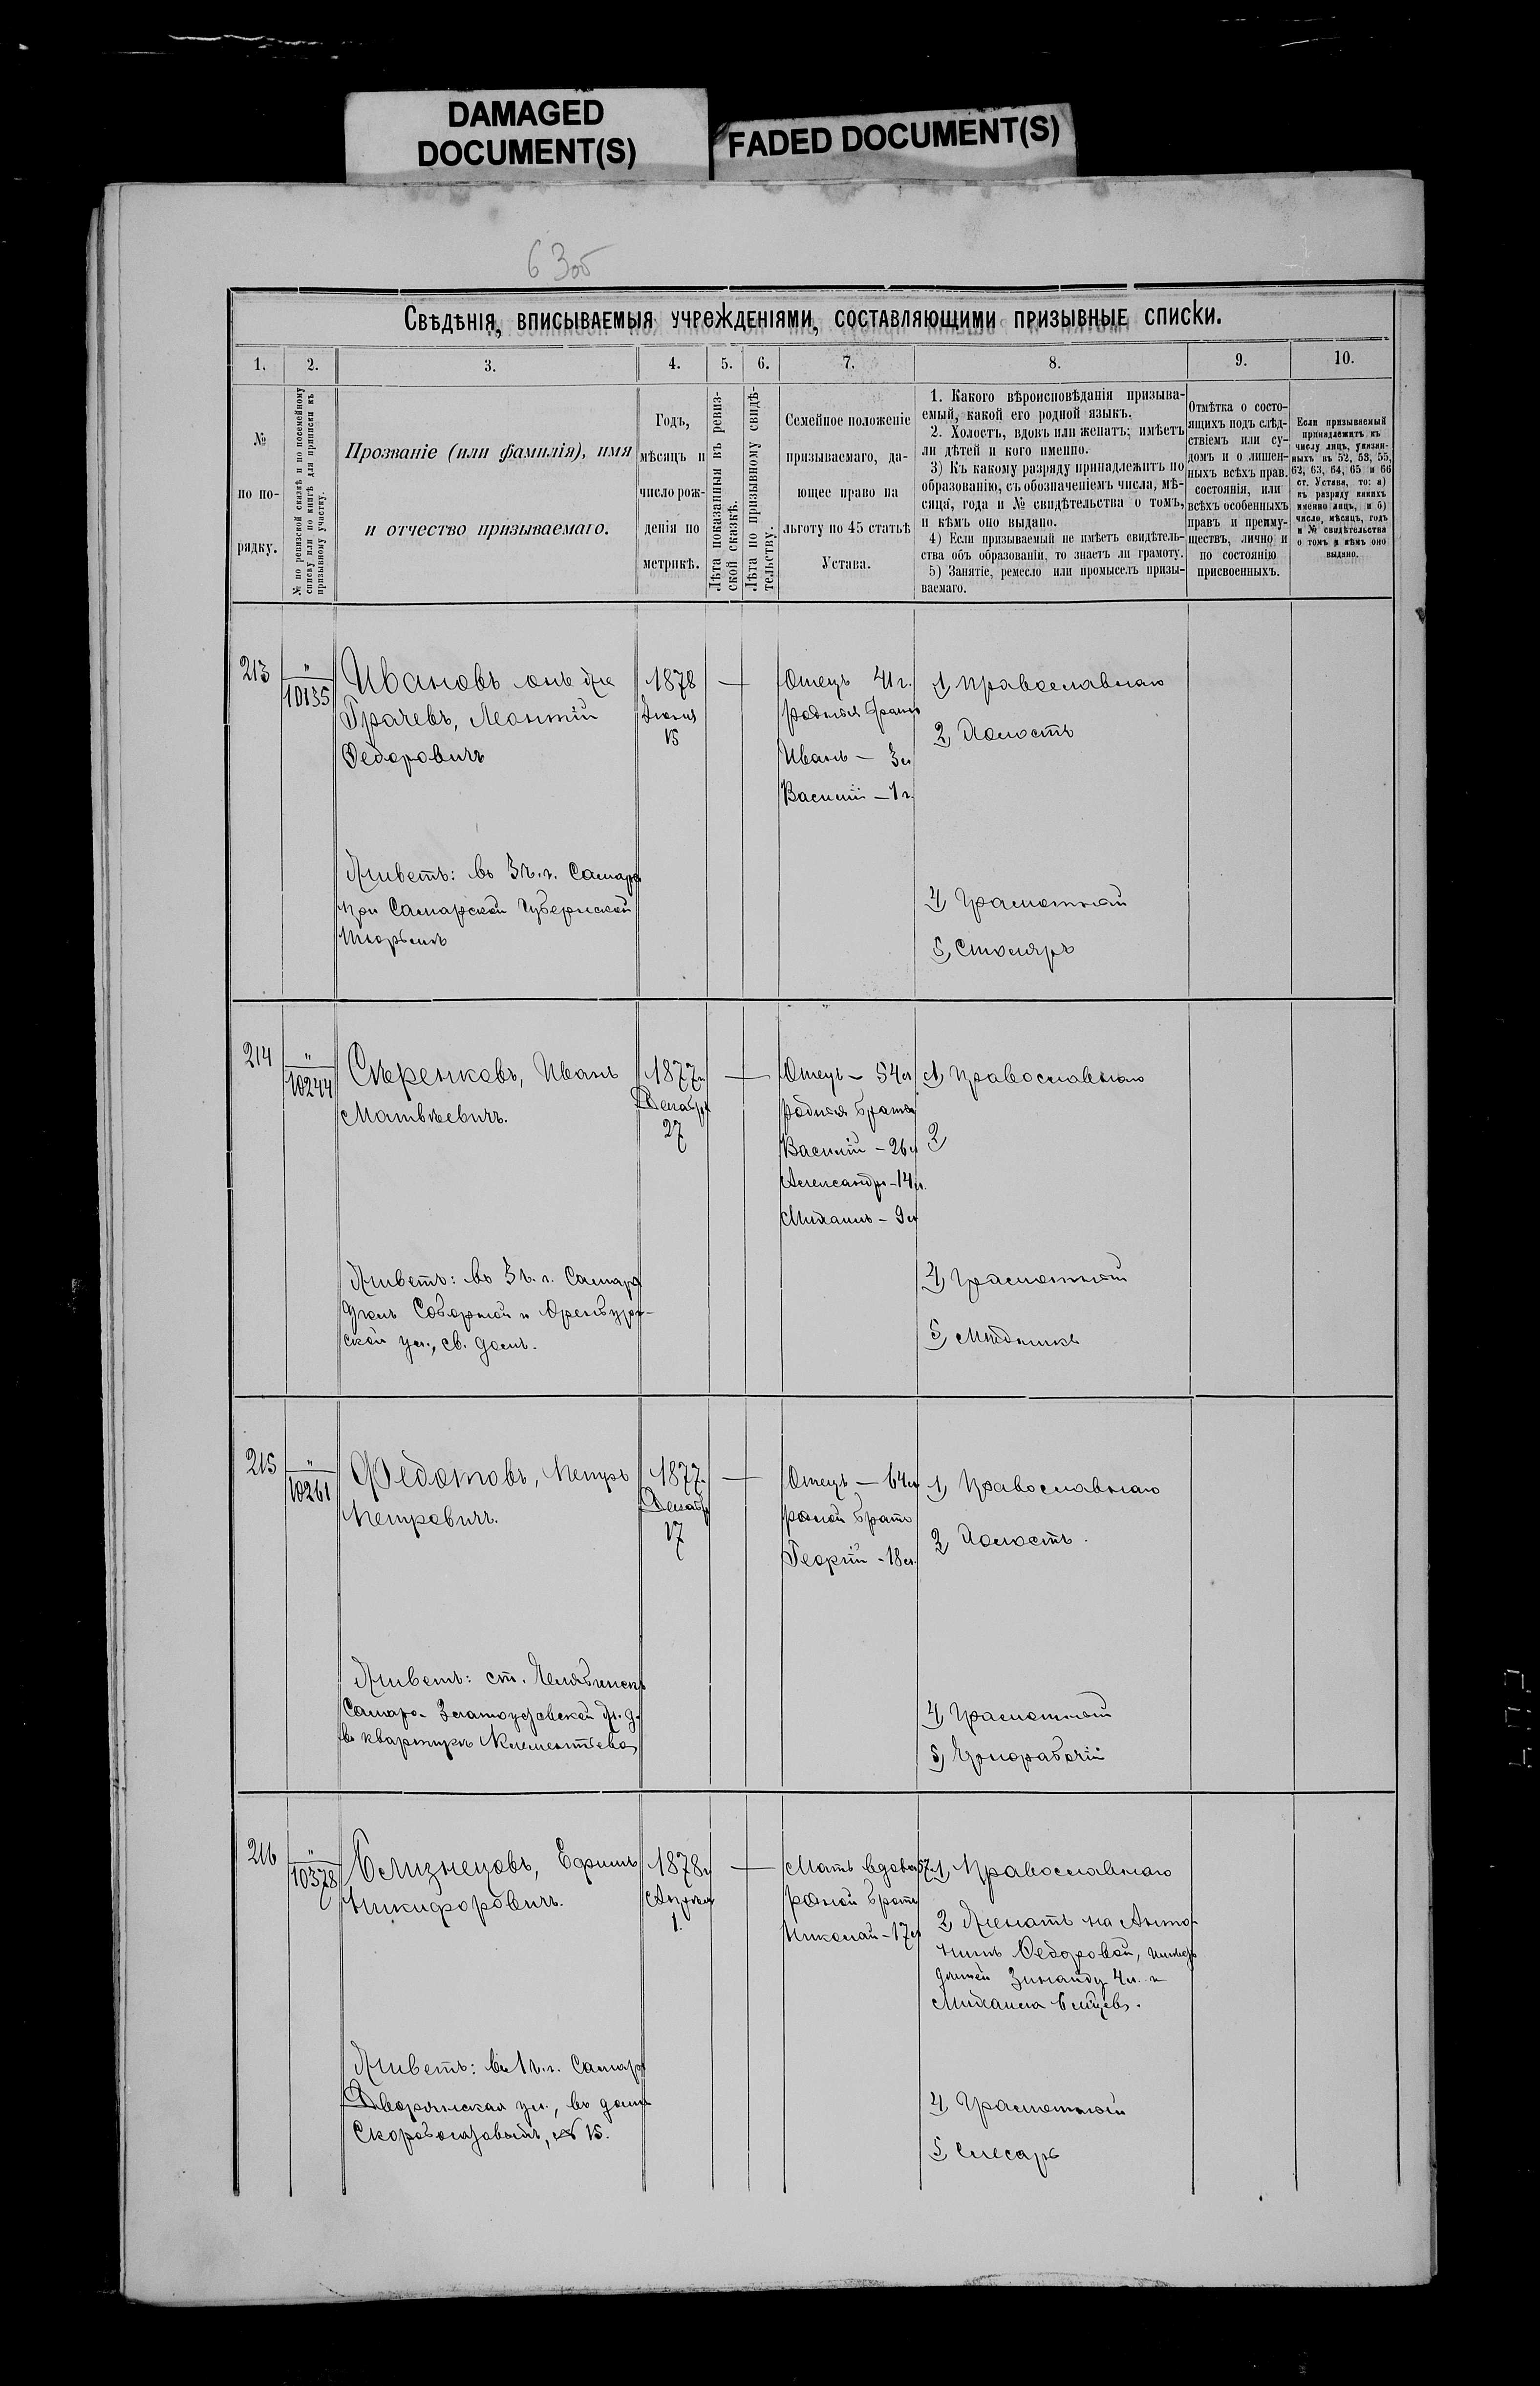 DAMAGED
DOCUMENT(S)
FADED DOCUMENT(S)
63 об
Свѣдѣнія, вписываемыя учрежденіями, составляющими призывные списки.
1. 2. 3. 4. 5. 6. 7. 8. 9. 10.
№
по по-
рядку.
№ по ревизской сказкѣ и по посемейному
списку или по книгѣ для приписки къ
призывному участку.
Прозваніе (или фамилія), имя
и отчество призываемаго.
Годъ,
мѣсяцъ и
число рож-
денія по
метрикѣ.
Лѣта показанныя въ ревиз-
ской сказкѣ.
Лѣта по призывному свидѣ-
тельству.
Семейное положеніе
призываемаго, да-
ющее право на
льготу по 45 статьѣ
Устава.
1. Какого вѣроисповѣданія призыва-
емый, какой его родной языкъ.
2. Холостъ, вдовъ или женатъ; имѣетъ
ли дѣтей и кого именно.
3) Къ какому разряду принадлежитъ по
образованію, съ обозначеніемъ числа, мѣ-
сяца, года и № свидѣтельства о томъ,
и кѣмъ оно выдано.
4) Если призываемый не имѣетъ свидѣтель-
ства объ образованіи, то знаетъ ли грамоту.
5) Занятіе, ремесло или промыселъ призы-
ваемаго.
Отмѣтка о состо-
ящихъ подъ слѣд-
ствіемъ или су-
домъ и о лишен-
ныхъ всѣхъ прав.
состоянія, или
всѣхъ особенныхъ
правъ и преиму-
ществъ, лично и
по состоянію
присвоенныхъ.
Если призываемый
принадлежитъ къ
числу лицъ, указан-
ныхъ въ 52, 53, 55,
62, 63, 64, 65 и 66
ст. Устава, то: а)
къ разряду какихъ
именно лицъ, и б)
число, мѣсяцъ, годъ
и № свидѣтельства
о томъ и кѣмъ оно
выдано.
213
"
10135
Ивановъ онъ же
Грачевъ, Леонтій
Федоровичъ
Живетъ: въ 3 ч. г. Самары
при Самарской Губернской
тюрьмѣ
1878
Іюня
15
—
Отецъ 41 г.
родныя братья
Иванъ — 3 л
Василій — 1 г.
1, Православнаго
2, Холостъ
4, Грамотный
5, Столяръ
214
"
10244
Съренковъ, Иванъ
Матвѣевичъ.
Живетъ: въ 3 ч. г. Самары
уголъ Соборной и Оренбург-
ской ул., св. домъ.
1877
Декабр
27
—
Отецъ — 54 л
родныя братья
Василій — 26 л
Александръ — 14 л.
Михаилъ — 9 л
1, Православнаго
2
4, Грамотный
5, Мѣдникъ
215
"
10261
Федотовъ, Петръ
Петровичъ.
Живетъ: ст. Челябинскъ
Самаро-Златоустовской ж. д.
въ квартирѣ Клементьева
1877.
Декабр
17
—
Отецъ — 64 л
родной братъ
Георгій — 18 л.
1, Православнаго
2, Холостъ.
4, Грамотный
5, Чернорабочій
216
"
10378
Близнецовъ, Ефимъ
Никифоровичъ.
Живетъ: въ 1 ч. г. Самары
Дворянская ул., въ домѣ
№ 15.
1878
Апрѣля
1.
—
Мать вдова 57
родной братъ
Николай — 17 л
1, Православнаго
2, Женатъ на Анто-
нинѣ Федоровой, имѣетъ
дѣтей Зинаиду 4 л. и
Михаила 6 мѣсяцевъ.
4, Грамотный
5, Слесарь